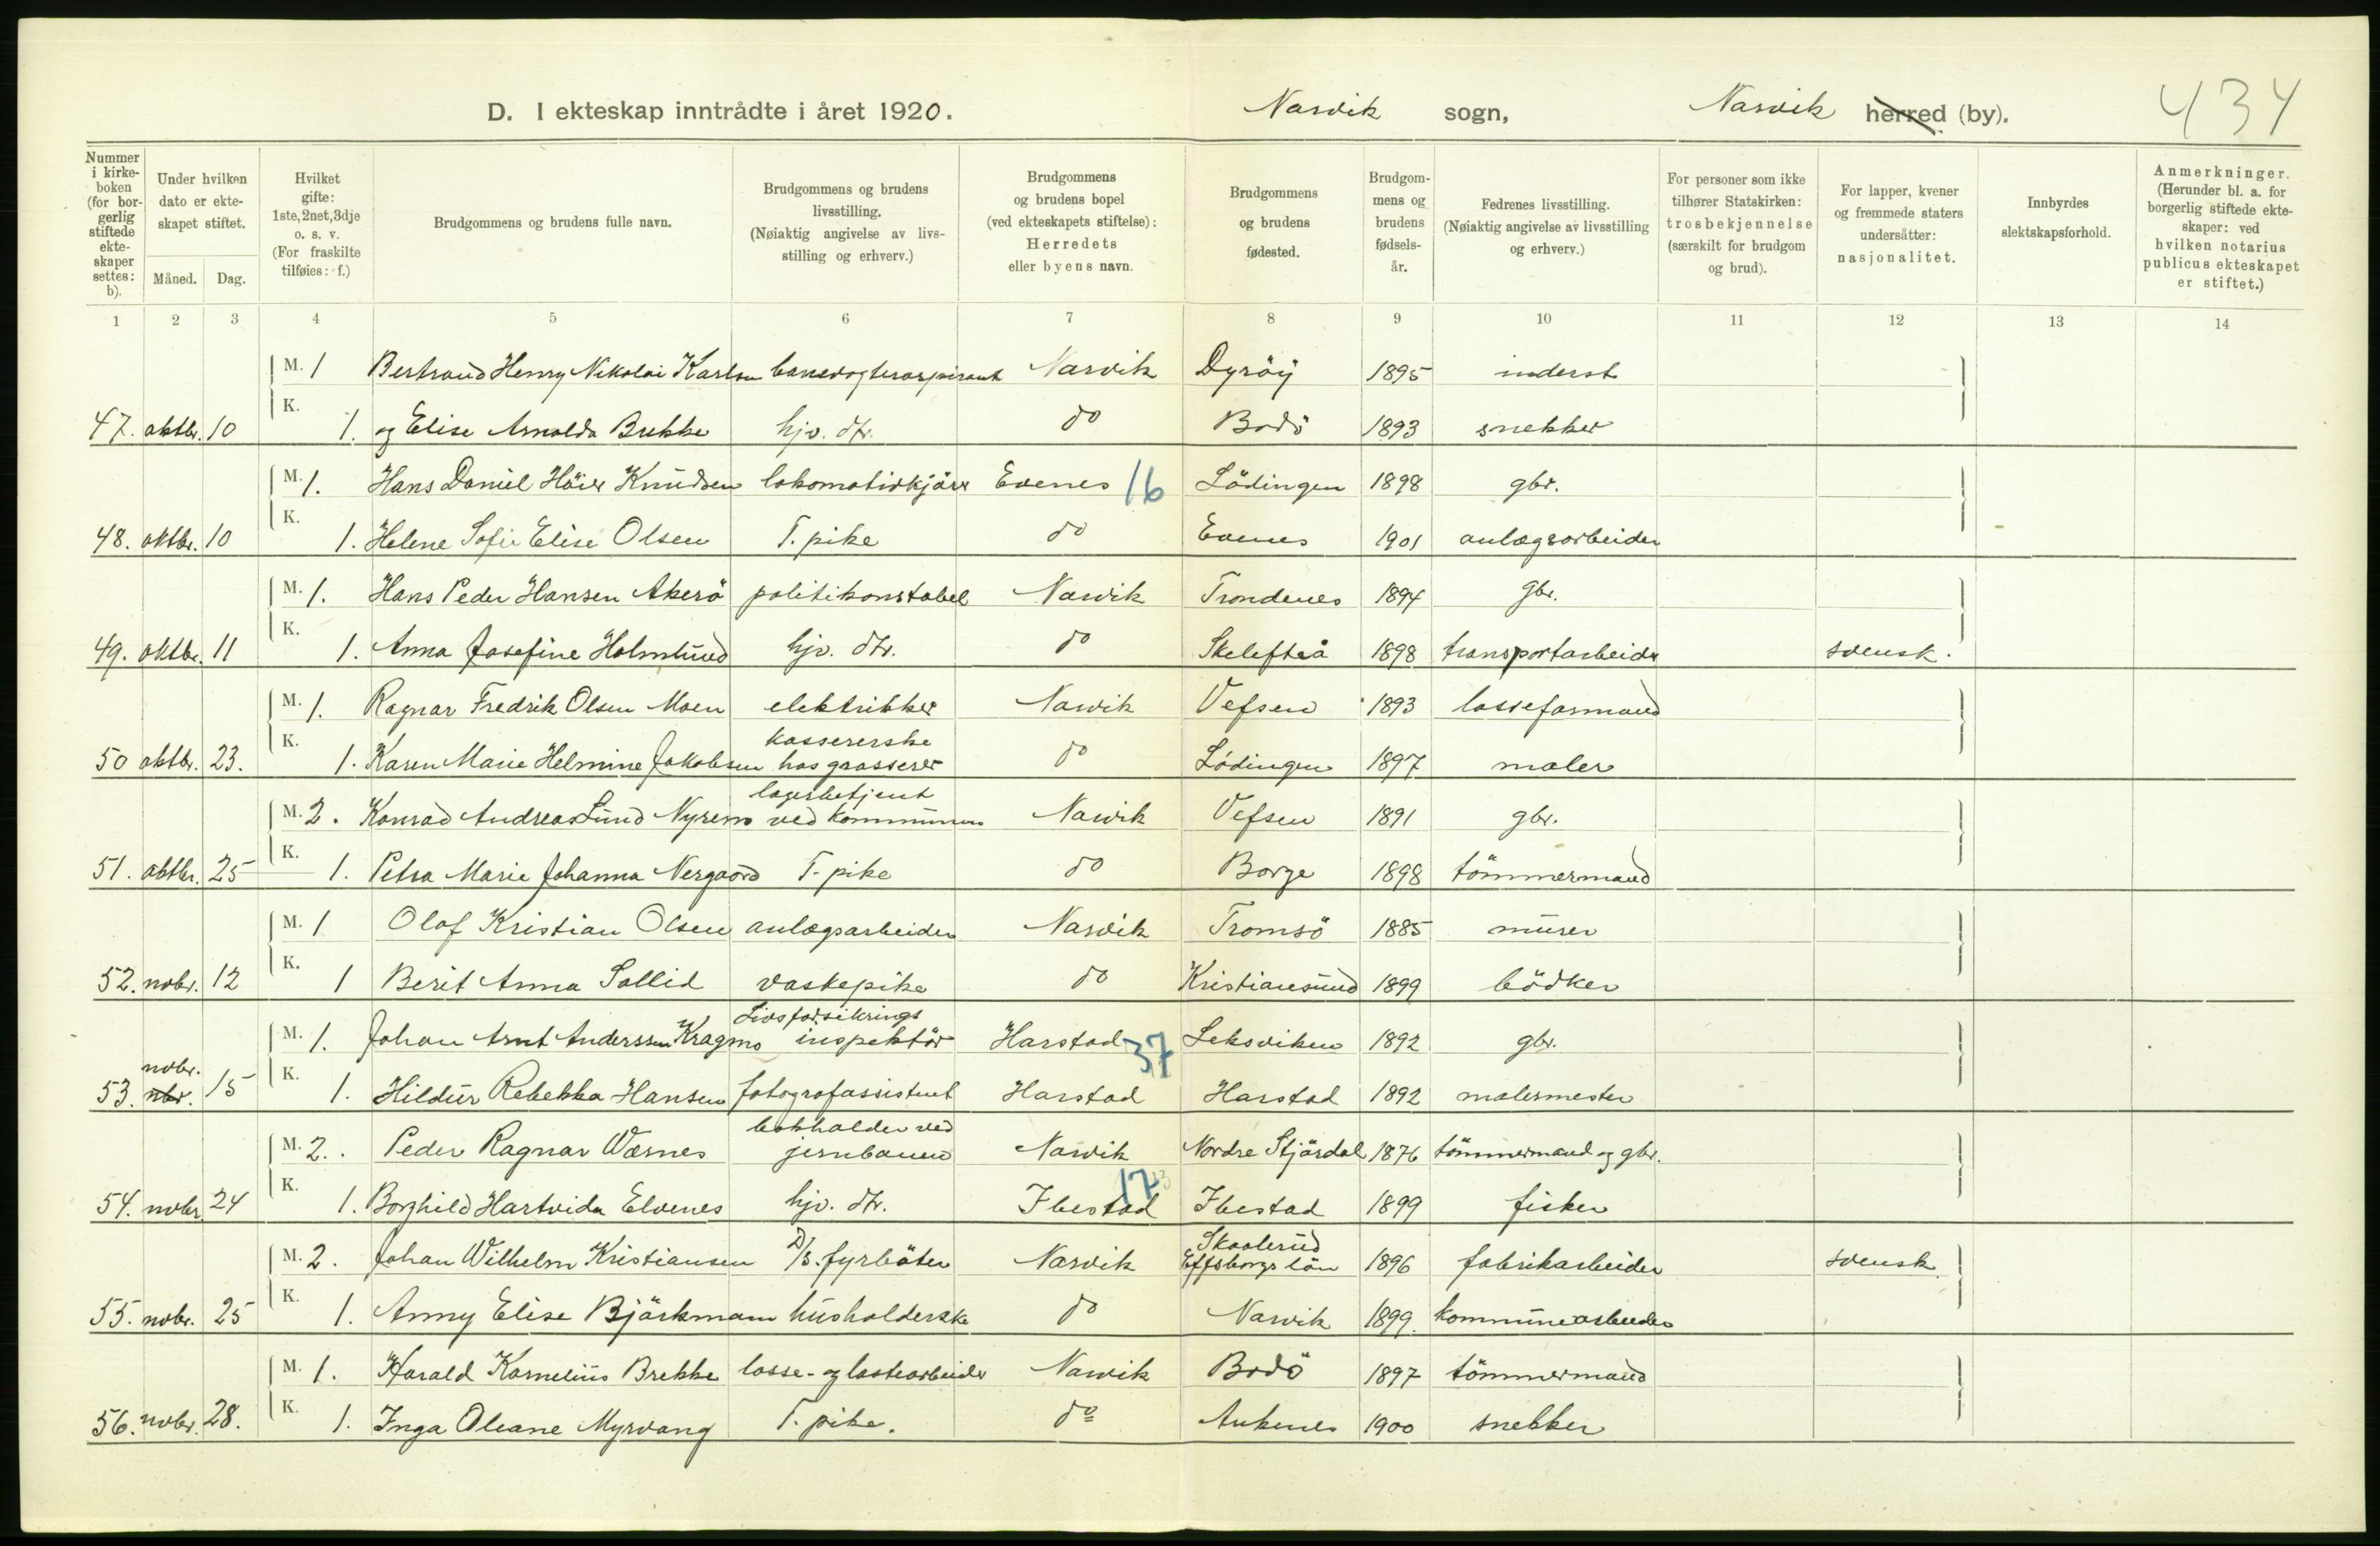 D. I ekteskap inntrådte i året 1920. Narvik sogn, Narvik herred (by). 434
Nummer i kirke-boken (for bor-gerlig stiftede ekte-skaper settes: b).
Under hvilken dato er ekte-skapet stiftet.
Måned. Dag.
Hvilket gifte: 1ste, 2net, 3dje o. s. v. (For fraskilte tilføies: f.)
Brudgommens og brudens fulle navn.
Brudgommens og brudens livsstilling. (Nøiaktig angivelse av livs-stilling og erhverv.)
Brudgommens og brudens bopel (ved ekteskapets stiftelse): Herredets eller byens navn.
Brudgommens og brudens fødested.
Brudgom-mens og brudens fødsels-år.
Fedrenes livsstilling. (Nøiaktig angivelse av livsstilling og erhverv.)
For personer som ikke tilhører Statskirken: trosbekjennelse (særskilt for brudgom og brud).
For lapper, kvener og fremmede staters undersåtter: nasjonalitet.
Innbyrdes slektskapsforhold.
Anmerkninger. (Herunder bl. a. for borgerlig stiftede ekte-skaper: ved hvilken notarius publicus ekteskapet er stiftet.)
1 2 3 4 5 6 7 8 9 10 11 12 13 14
M. 1 Bertrand Henry Nikolai Karlsen banevogteraspirant Narvik Dyröy 1895 inderst
47. oktbr. 10 K. 1. og Elise Arnolda Brekke hjv. dtr. do Bodö 1893 snekker
M. 1. Hans Daniel Höier Knudsen lokomotivkjörer Evenes 16 Lödingen 1898 gbr.
48. oktbr. 10 K. 1. Helene Sofie Elise Olsen T. pike do Evenes 1901 anlægsarbeider
M. 1. Hans Peder Hansen Akerö politikonstabel Narvik Trondenes 1894 gbr.
49. oktbr. 11 K. 1. Anna Josefine Holmlund hjv. dtr. do Skelefteå 1898 transportarbeider svensk.
M. 1. Ragnar Fredrik Olsen Moen elektrikker Narvik Vefsen 1893 losseformand
kassererske
50 oktbr. 23. K. 1. Karen Marie Helmine Jakobsen hos grosserer do Lödingen 1897 maler
lagerbetjent
M. 2. Konrad Andreas Lund Nyrem ved kommunen Narvik Vefsen 1891 gbr.
51. oktbr. 25 K. 1. Petra Marie Johanna Nergaard T. pike do Borge 1898 tömmermand
M. 1 Olaf Kristian Olsen anlægsarbeider Narvik Tromsö 1885 murer
52. nobr. 12 K. 1 Berit Anna Sollid vaskepike do Kristiansund 1899 bödker
Livsforsikrings
M. 1. Johan Arnt Anderssen Kragmo inspektör Harstad 37 Leksviken 1892 gbr.
nobr.
53. nbr. 15 K. 1. Hildur Rebekka Hansen fotografassistent Harstad Harstad 1892 malermester
bokholder ved
M. 2. Peder Ragnar Wærnes jernbanen Narvik Nordre Stjördal 1876 tömmermand og gbr.
54. nobr. 24 K. 1. Borghild Hartvida Elvenes hjv. dtr. Ibestad 17 Ibestad 1899 fisker
Skaalerud
M. 2. Johan Wilhelm Kristiansen D/S. fyrböter Narvik Elfsborgs län 1896 fabrikarbeider svensk
55. nobr. 25 K. 1. Anny Elise Björkmann husholderske do Narvik 1899. kommunearbeider
M. 1. Harald Kornelius Brekke losse- og lastearbeider Narvik Bodö 1897 tömmermand
56. nobr. 28. K. 1. Inga Oleane Myrvang T. pike. do Ankenes 1900 snekker